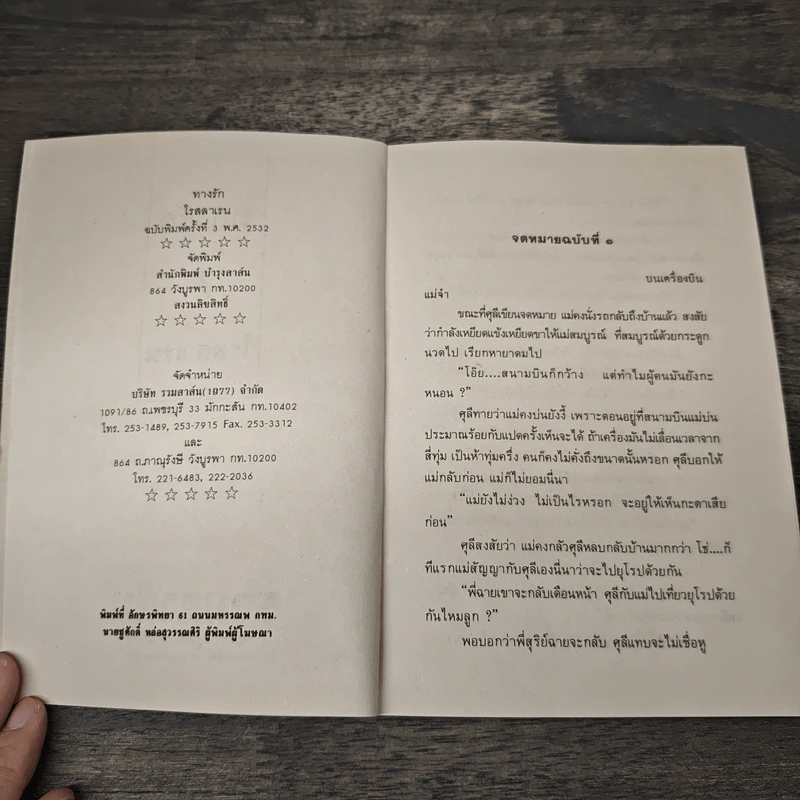 ทางรัก
โรสลาเรน
ฉบับพิมพ์ครั้งที่ 3 พ.ศ. 2532
☆ ☆ ☆ ☆ ☆
จัดพิมพ์
สำนักพิมพ์ บำรุงสาส์น
864 วังบูรพา กท.10200
สงวนลิขสิทธิ์
☆ ☆ ☆ ☆ ☆
จัดจำหน่าย
บริษัท รวมสาส์น(1977) จำกัด
1091/86 ถ.เพชรบุรี 33 มักกะสัน กท.10402
โทร. 253-1489, 253-7915 Fax. 253-3312
และ
864 ถ.ภาณุรังษี วังบูรพา กท.10200
โทร. 221-6483, 222-2036
☆ ☆ ☆ ☆ ☆
พิมพ์ที่ อักษรพิทยา 61 ถนนมหรรณพ กทม.
นายชูศักดิ์ หล่อสุวรรณศิริ ผู้พิมพ์ผู้โฆษณา
จดหมายฉบับที่ ๑
บนเครื่องบิน
แม่จ๋า
ขณะที่ศุลีเขียนจดหมาย แม่คงนั่งรถกลับถึงบ้านแล้ว สงสัย
ว่ากำลังเหยียดแข้งเหยียดขาให้แม่สมบูรณ์ ที่สมบูรณ์ด้วยกระดูก
นวดไป เรียกหายาดมไป
“โอ๊ย....สนามบินก็กว้าง แต่ทำไมผู้คนมันยังกะ
หนอน ?”
ศุลีทายว่าแม่คงบ่นยังงี้ เพราะตอนอยู่ที่สนามบินแม่บ่น
ประมาณร้อยกับแปดครั้งเห็นจะได้ ถ้าเครื่องมันไม่เลื่อนเวลาจาก
สี่ทุ่ม เป็นห้าทุ่มครึ่ง คนก็คงไม่คั่งถึงขนาดนั้นหรอก ศุลีบอกให้
แม่กลับก่อน แม่ก็ไม่ยอมนี่นา
“แม่ยังไม่ง่วง ไม่เป็นไรหรอก จะอยู่ให้เห็นกะตาเสีย
ก่อน”
ศุลีสงสัยว่า แม่คงกลัวศุลีหลบกลับบ้านมากกว่า โธ่....ก็
ทีแรกแม่สัญญากับศุลีเองนี่นาว่าจะไปยุโรปด้วยกัน
“พี่ฉายเขาจะกลับเดือนหน้า ศุลีกับแม่ไปเที่ยวยุโรปด้วย
กันไหมลูก ?”
พอบอกว่าพี่สุริย์ฉายจะกลับ ศุลีแทบจะไม่เชื่อหู